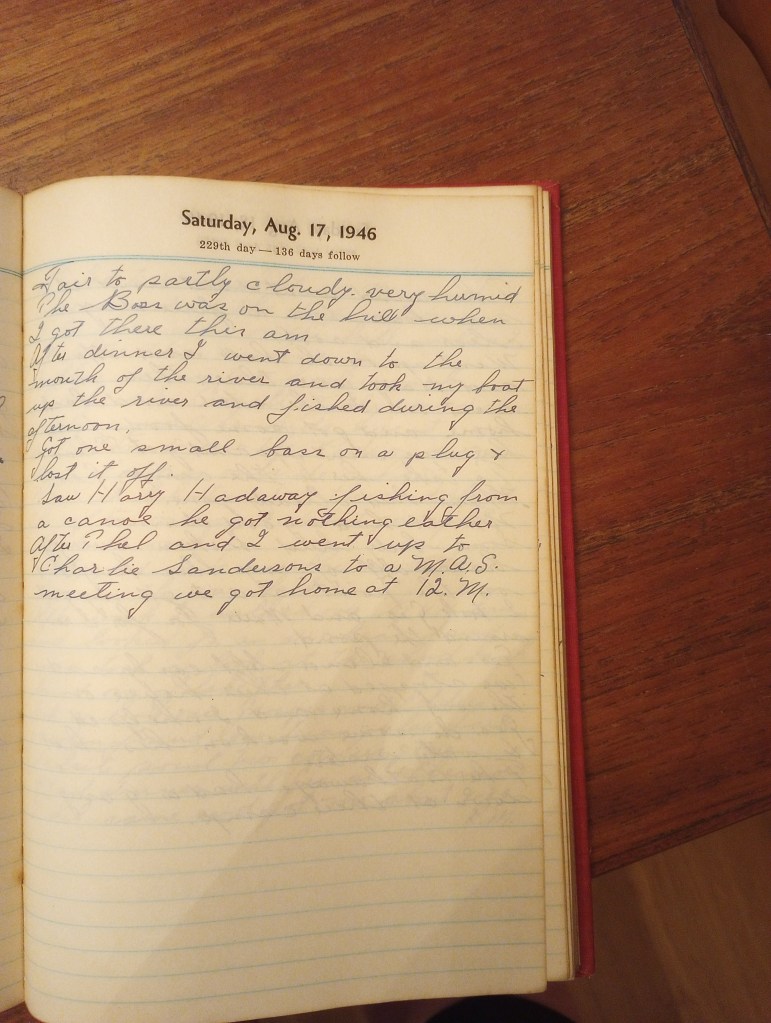 Saturday, Aug. 17, 1946
229th day — 136 days follow
Fair to partly cloudy. very humid
The Boss was on the hill when
I got there this am
After dinner I went down to the
mouth of the river and took my boat
up the river and fished during the
afternoon.
Got one small bass on a plug &
lost it off.
Saw Harry Hadaway fishing from
a canoe he got nothing eather
After Phel and I went up to
Charlie Sandersons to a M.A.S.
meeting we got home at 12. M.